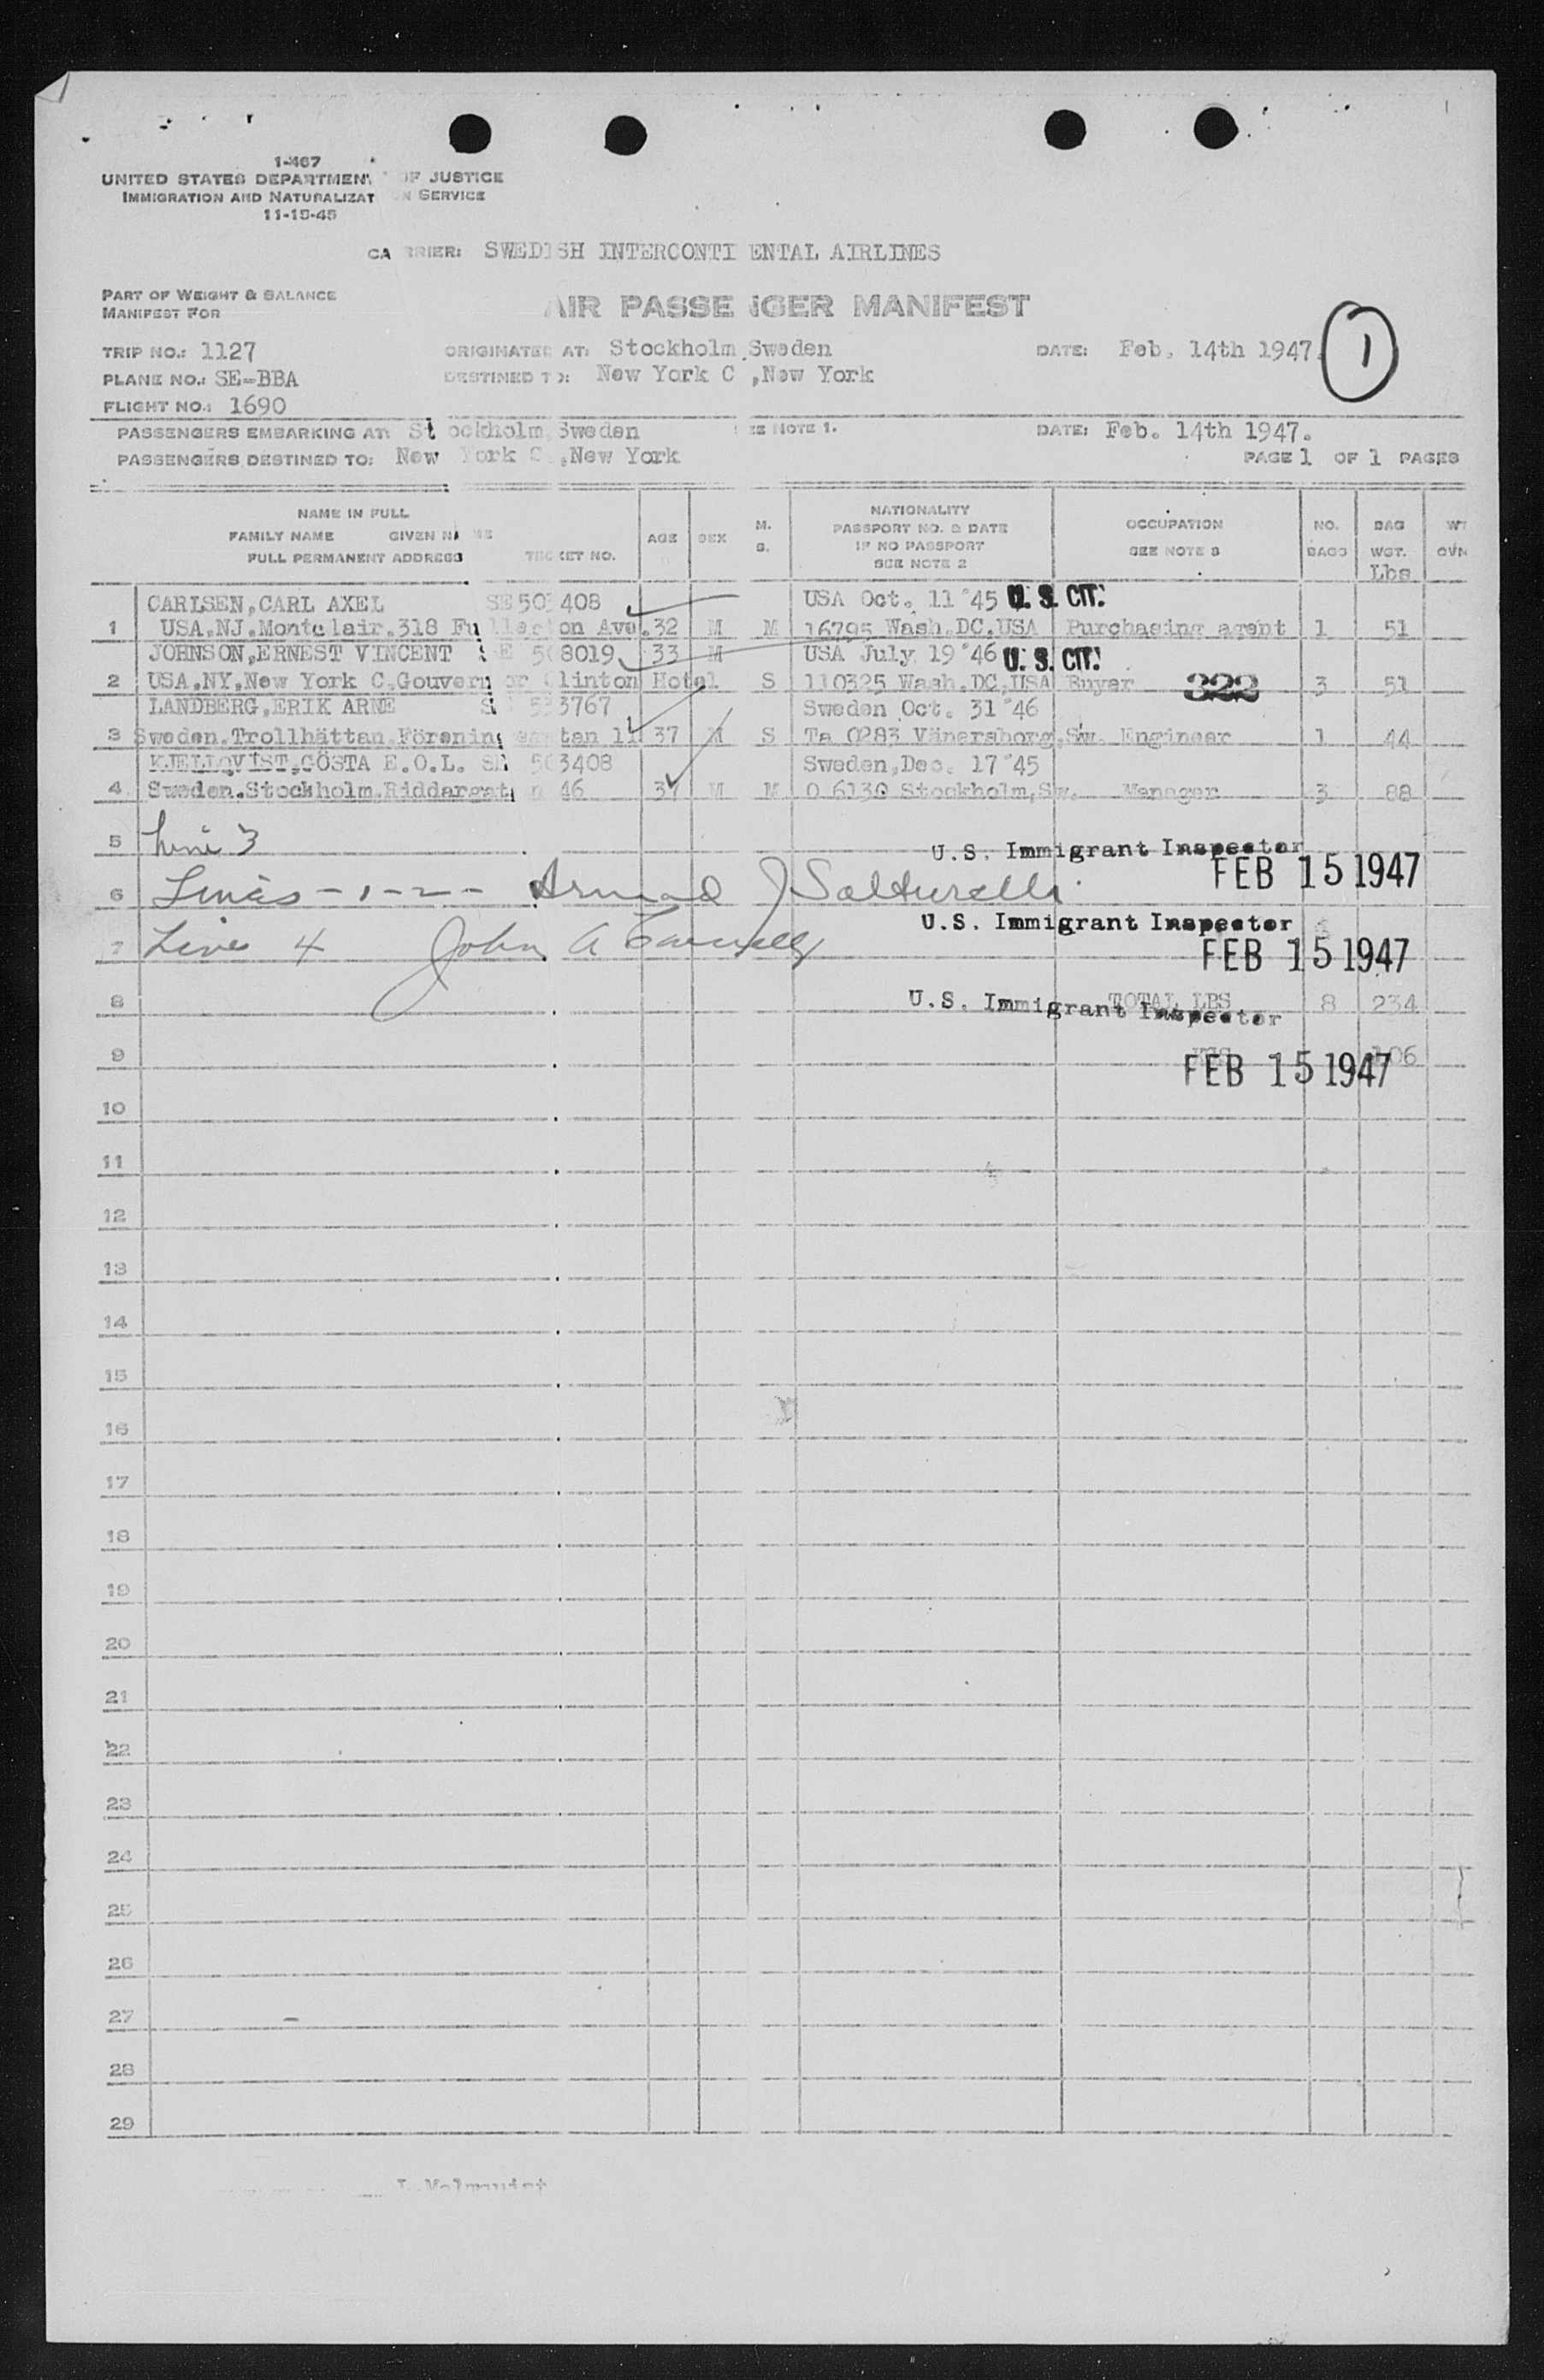 1-467
UNITED STATES DEPARTMENT OF JUSTICE
IMMIGRATION AND NATURALIZATION SERVICE
11-15-45
CARRIER: SWEDISH INTERCONTI ENTAL AIRLINES
PART OF WEIGHT & BALANCE
MANIFEST FOR
AIR PASSENGER MANIFEST
1
TRIP NO.: 1127 ORIGINATED AT: Stockholm Sweden DATE: Feb. 14th 1947.
PLANE NO.: SE-BBA DESTINED TO: New York C ,New York
FLIGHT NO.: 1690
PASSENGERS EMBARKING AT: Stockholm Sweden SEE NOTE 1. DATE: Feb. 14th 1947.
PASSENGERS DESTINED TO: New York C ,New York PAGE 1 OF 1 PAGES
NAME IN FULL
FAMILY NAME GIVEN NAME
FULL PERMANENT ADDRESS TICKET NO. AGE SEX M. S. NATIONALITY PASSPORT NO. & DATE IF NO PASSPORT SEE NOTE 2 OCCUPATION SEE NOTE 3 NO. BAGS BAG WGT. Lbs WT OVN
CARLSEN,CARL AXEL SE 503408 USA Oct. 11 '45 U.S. CIT.
1 USA,NJ.Montclair.318 Fullerton Ave. 32 M M 16795 Wash.DC.USA Purchasing agent 1 51
JOHNSON,ERNEST VINCENT SE 508019 33 M USA July 19 '46 U.S. CIT.
2 USA,NY,New York C,Gouvernor Clinton Hotel S 110325 Wash.DC,USA Buyer 322 3 51
LANDBERG,ERIK ARNE 533767 Sweden Oct. 31 '46
3 Sweden.Trollhättan.Förening tan 11 37 M S Ta 0283 Vänersborg,Sw. Engineer 1 44
KJELLQVIST,GÖSTA E.O.L. SE 503408 Sweden,Dec. 17 '45
4 Sweden.Stockholm.Riddargatan 46 37 M M 0 6130 Stockholm,Sw. Manager 3 88
5 Line 3
U.S. Immigrant Inspector
FEB 15 1947
6 Lines - 1 - 2 -
U.S. Immigrant Inspector
7 Line 4 John A
FEB 15 1947
8 TOTAL LBS 8 234
U.S. Immigrant Inspector
9 KGS 106
FEB 15 1947
10
11
12
13
14
15
16
17
18
19
20
21
22
23
24
25
26
27
28
29